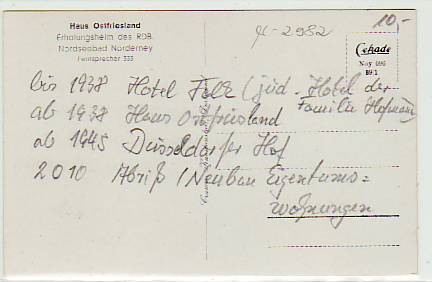 Haus Ostfriesland
Erholungsheim des RDB.
Nordseebad Norderney
Fernsprecher 333
4-2982
10,-
Cekade
Ney 096
B9/1
bis 1938 Hotel Falk (jüd. Hotel der
Familie Hofmann)
ab 1938 Haus Ostfriesland
ab 1945 Düsseldorfer Hof
2010 Abriß / Neubau Eigentums=
wohnungen